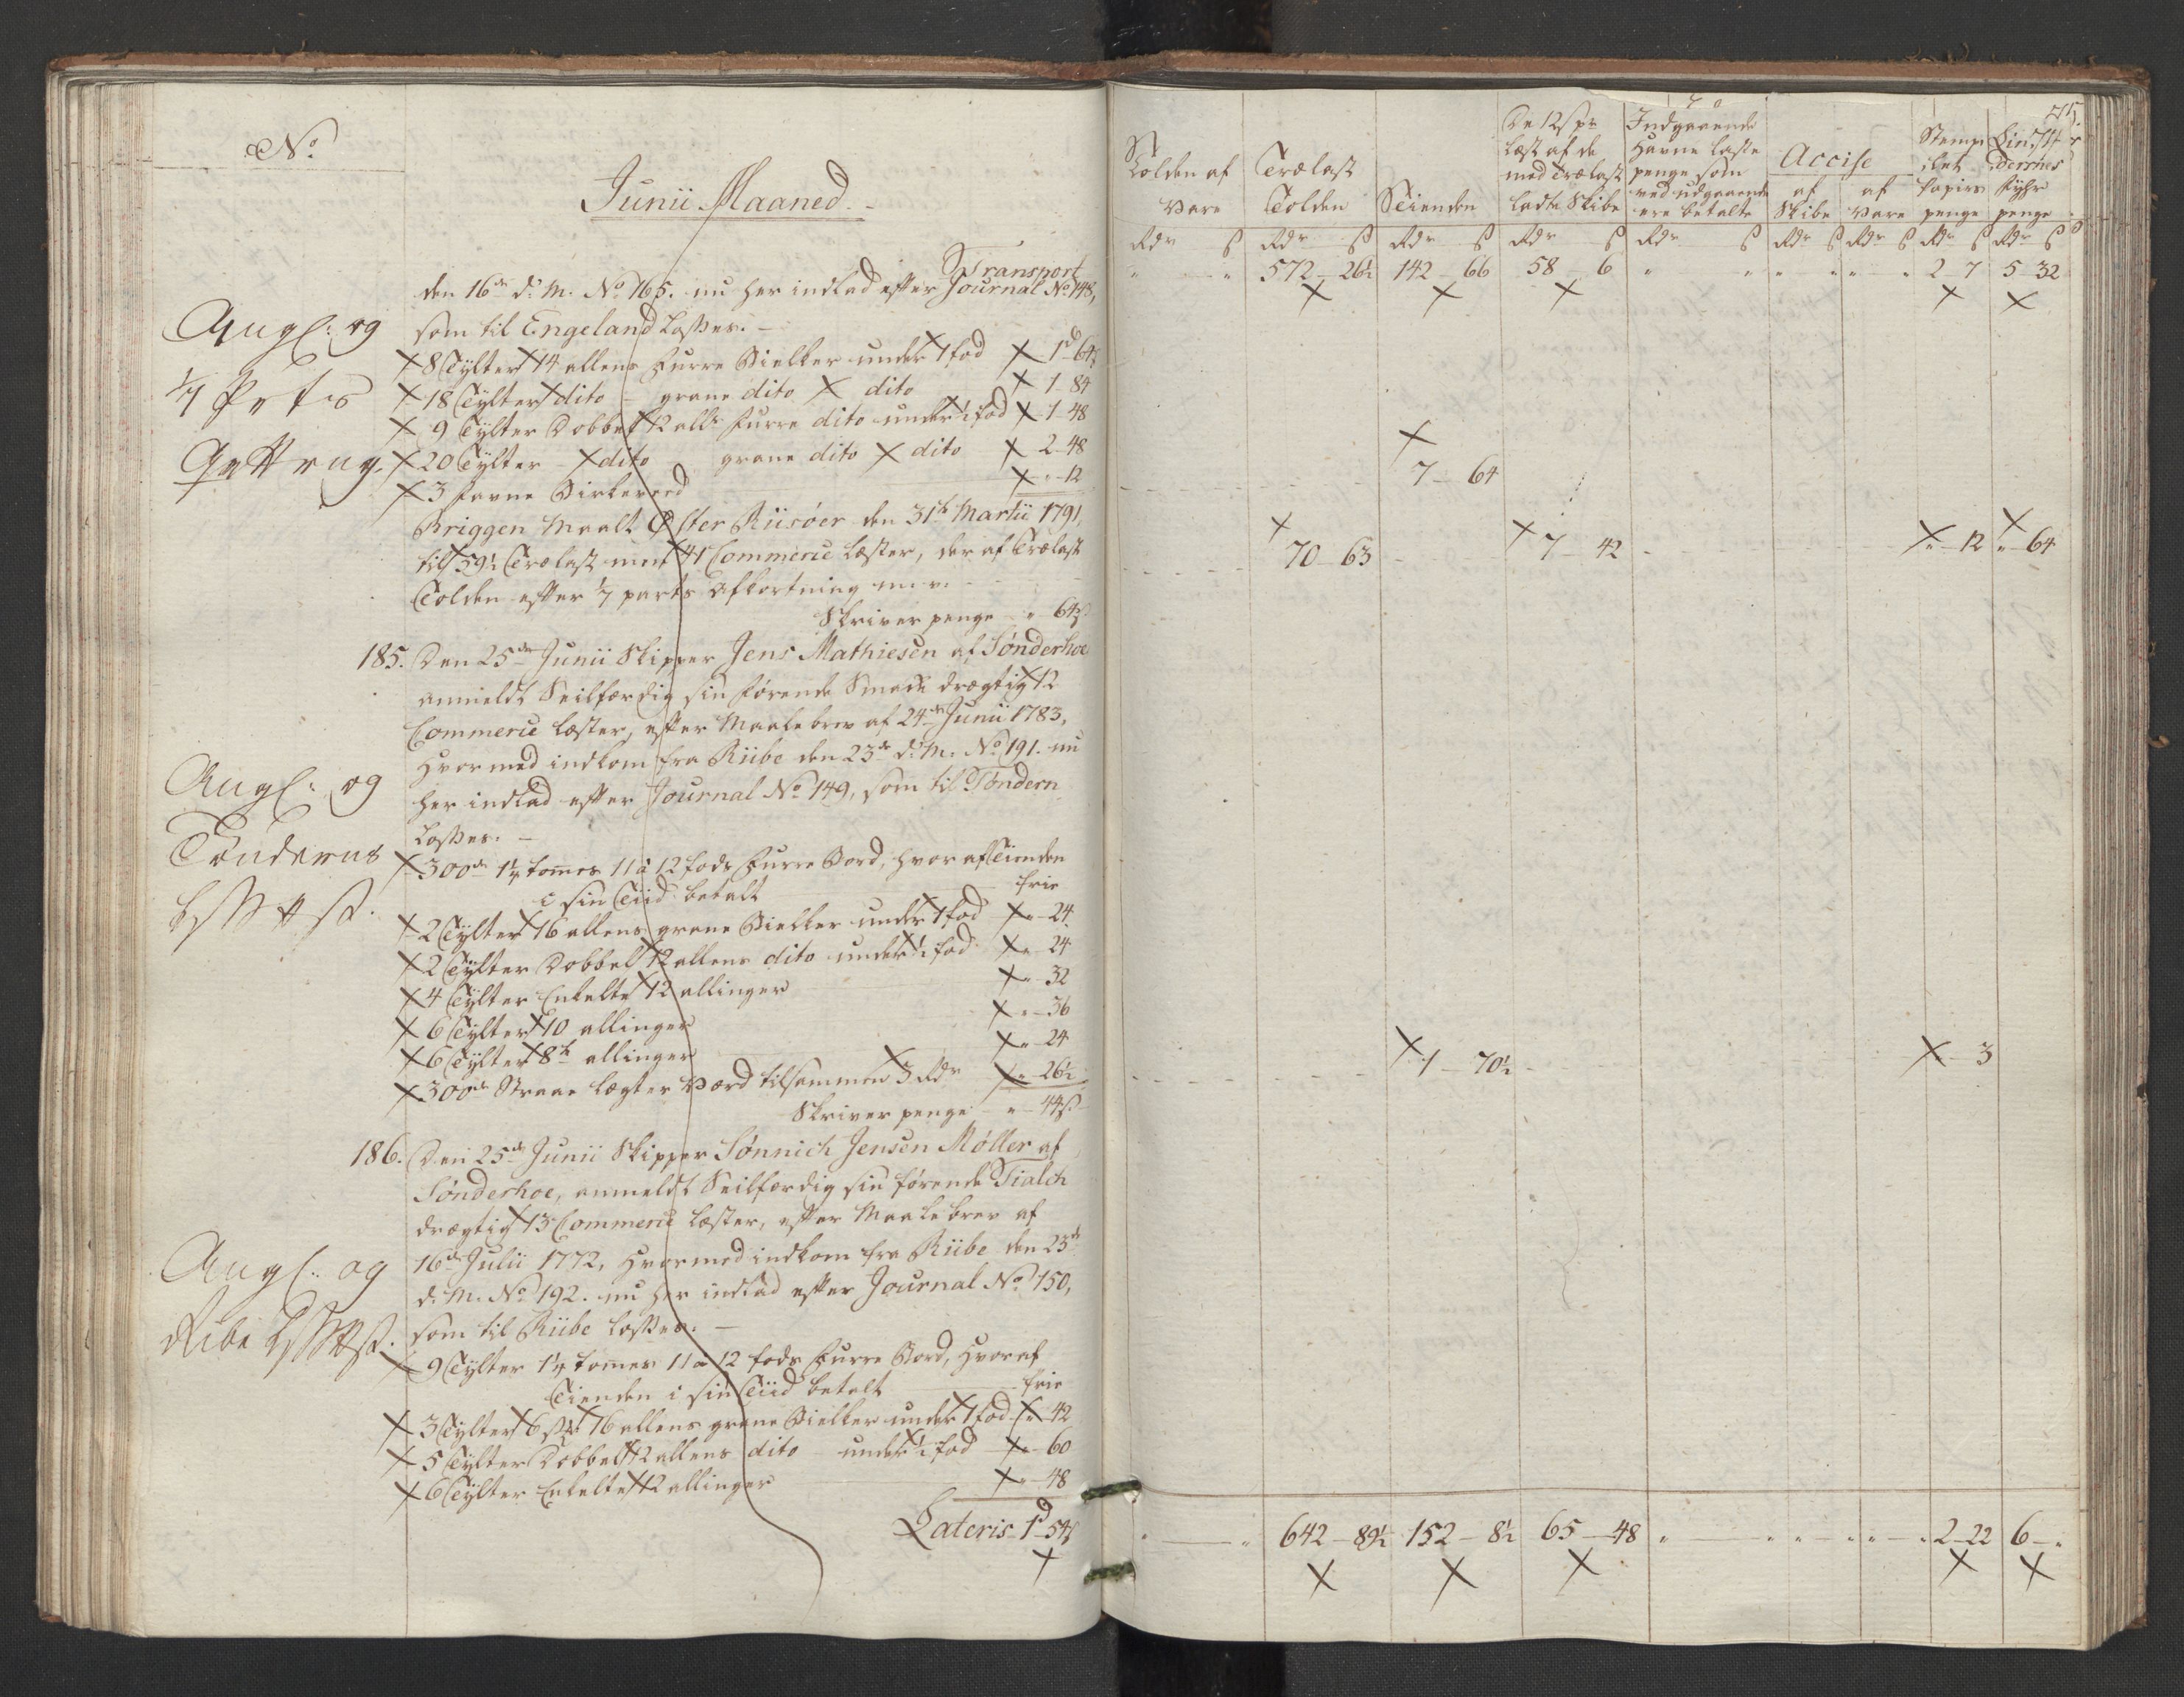 No.
Junii Maaned.
Transport
den 16de d: M. No 165. nu her indlad efter Journal No 148,
som til Engeland losses. —
Angl: og
1/7 Parts
8 Tylter 14 allens Furre Bielker under 1 fod 1d 64ß
18 Tylter dito grane dito dito 1-84
9 Tylter Dobbelt 12 all: Furre dito under 1/2 fod 1-48
20 Tylter dito grane dito dito 2-48
3 favne Birkeved " - 12
Briggen Maalt Øster Riisøer den 31te Martii 1791,
til 59 1/2 Trælast men 41 Commerce Læster, der af Trælast
Tolden efter 1/7 parts afkortning m. v.
Skriver penge " 64ß
185. Den 25de Junii Skipper Jens Mathiesen af Sønderhoe
anmeldt Seilfærdig sin førende Smack drægtig 12
Commerce Læster, efter Maalebrev af 24de Junii 1783,
Hvormed indkom fra Riibe den 23de d: M. No 191. nu
her indlad efter Journal No 149, som til Tøndern
losses. —
Angl: og
Tønderns
300de 1 1/4 tomes 11 à 12 fods Furre Bord, hvor af Tienden
i sin Tiid betalt frie
2 Tylter 16 allens grane Bielker under 1 fod " - 24
2 Tylter Dobbel 12 allens dito under 1/2 fod " - 24
4 Tylter Enkelte 12 allinger " - 32
6 Tylter 10 allinger " - 36
6 Tylter 8te allinger " - 24
300de Straae Lægter Værd tilsammen 3 Rdr " - 26 1/2
Skriver penge " - 44ß
186. Den 25de Junii Skipper Sønnich Jensen Møller af
Sønderhoe, anmeldt Seilfærdig sin førende Tialch
drægtig 13 Commerce Læster, efter Maalebrev af
16de Julii 1772, Hvormed indkom fra Riibe den 23de
d: M. No 192. nu her indlad efter Journal No 150,
som til Riibe losses. —
Angl: og
Ribe
9 Tylter 1 1/4 tomes 11 à 12 fods Furre Bord, Hvor af
Tienden i sin Tiid betalt frie
3 Tylter 6 st: 16 allens grane Bielker under 1 fod " - 42
5 Tylter Dobbelt 12 allens dito under 1/2 fod " - 60
6 Tylter Enkelte 12 allinger " - 48
Lateris 1d 54ß
Tolden af Vare
Trælast Tolden
Tienden
De 12 ß pr Læst af de med Trælast ladte Skibe
Indgaaende Havne laste penge som ved udgaaende ere betalte
Accise
af Skibe
af Vare
Stemplet Papirs penge
Fyhr penge
Rdr ß Rdr ß Rdr ß Rdr ß Rdr ß Rdr ß Rdr ß Rdr ß Rdr ß
" " 572-26 1/2 142-66 58-6 " " " " " " 2-7 5-32
7-64
70-63 7-42 "-12 "-64
1-70 1/2 3
" " 642-89 1/2 152-8 1/2 65-48 " " " " " " 2-22 6-"